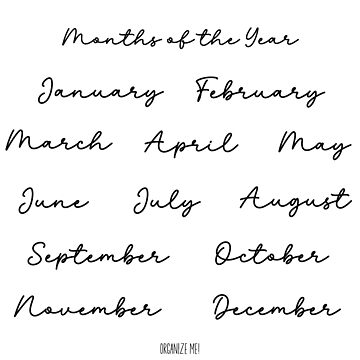 Months of the Year
January February
March April May
June July August
September October
November December
ORGANIZE ME!